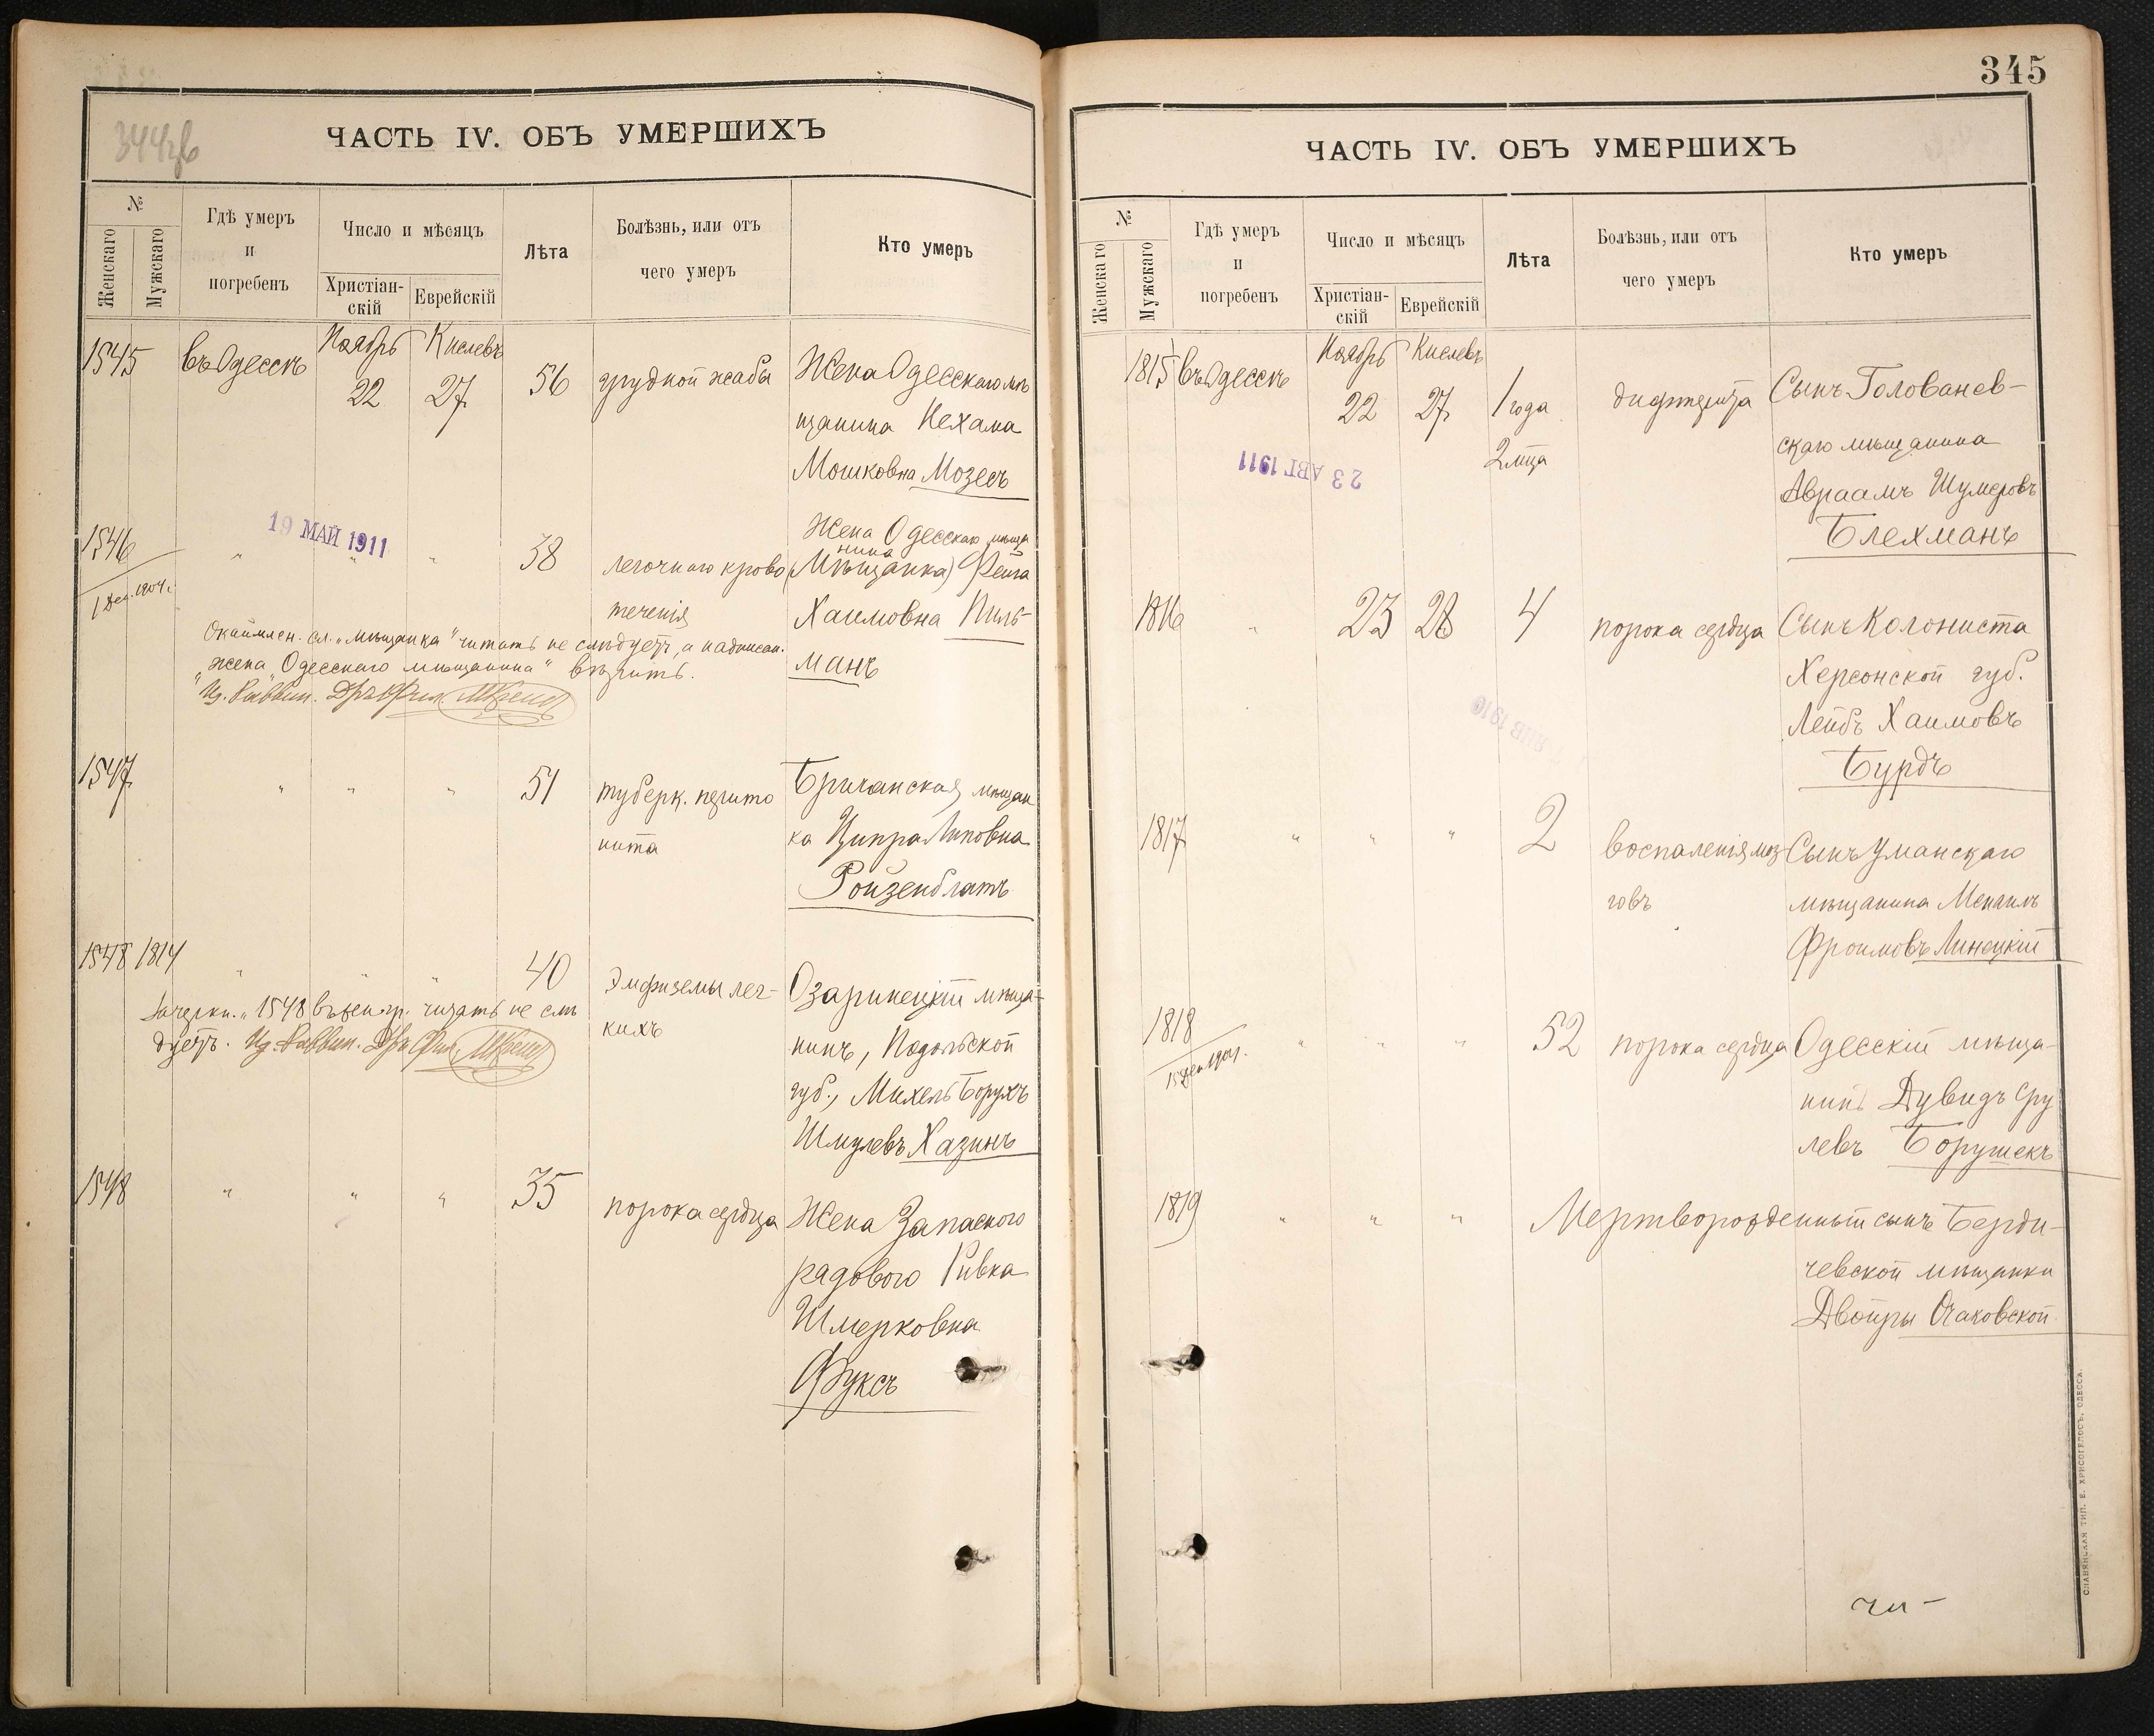 344об
ЧАСТЬ IV. ОБЪ УМЕРШИХЪ
№
Женскаго
Мужскаго
Гдѣ умеръ
и
погребенъ
Число и мѣсяцъ
Христіан-
скій
Еврейскій
Лѣта
Болѣзнь, или отъ
чего умеръ
Кто умеръ
Ноябрь Кислевъ
1545 въ Одессѣ 22 27 56 грудной жабы Жена Одесскаго мѣ
щанина Нехама
Мошковна Мозесъ
19 МАЙ 1911
Жена Одесскаго мѣща
нина
1546 " " " 38 легочнаго крово (Мѣщанка) Фейга
1 Дек. 1904 г.
течения Хаимовна Пиль-
манъ
Окаймлен. сл. „мѣщанка" читать не слѣдуетъ, а надписан.
„жена Одесскаго мѣщанина" вѣрить.
Раввин.
1547 " " " 51 туберк. перито Бричанская мѣщан
нита ка Ципра Липовна
Ройзенблатъ
1548 1814 " " " 40 Эмфиземы лег- Озаринецкій мѣща-
кихъ нинъ, Подольской
губ., Михель Борухъ
Шмулевъ Хазинъ
Зачеркн. „1548 въ жен. гр. читать не слѣ
дуетъ. Раввин.
1548 " " " 35 порока сердца Жена Запаснаго
рядового Ривка
Шмерковна
Фуксъ
345
ЧАСТЬ IV. ОБЪ УМЕРШИХЪ
№
Женскаго
Мужскаго
Гдѣ умеръ
и
погребенъ
Число и мѣсяцъ
Христіан-
скій
Еврейскій
Лѣта
Болѣзнь, или отъ
чего умеръ
Кто умеръ
Ноябрь Кислевъ
1815 въ Одессѣ 22 27 1 года дифтерита Сынъ Голованев-
2 м-ца скаго мѣщанина
Авраамъ Шумеровъ
Блехманъ
23 АВГ 1911
1816 " 23 28 4 порока сердца Сынъ Колониста
Херсонской губ.
Лейбъ Хаимовъ
Бурдъ
ЯНВ 1910
1817 " " " 2 воспаленія моз Сынъ Уманскаго
говъ мѣщанина Менаилъ
Фроимовъ Линецкій
1818 " " " 52 порока сердца Одесскій мѣща-
15 Дек. 1904 г.
нинъ Дувидъ Сру
левъ Борушекъ
1819 " " " Мертворожденный сынъ Берди-
чевской мѣщанки
Двойры Очаковской
СЛАВЯНСКАЯ ТИП. Е. ХРИСОГЕЛОСЪ, ОДЕССА.